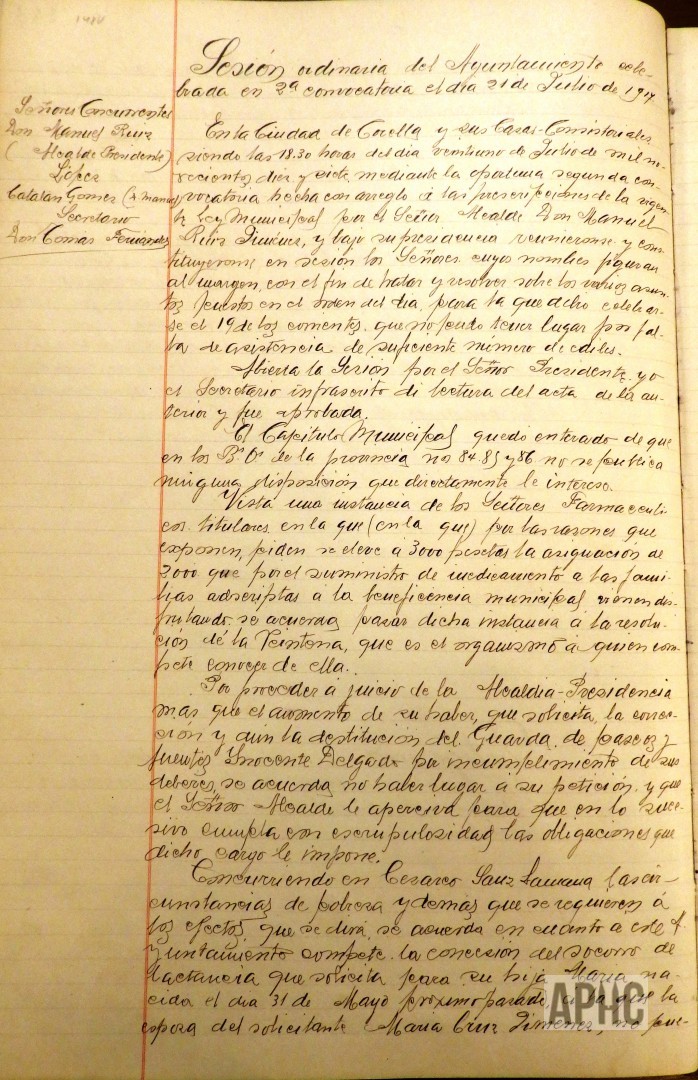 Sesión ordinaria del Ayuntamiento cele-
brada en 2ª convocatoria el día 21 de Julio de 1917
Señores Concurrentes
Don Manuel Ruiz
(Alcalde Presidente)
López
Catalán Gómez (
Secretario
Don Tomás Fernández
En la Ciudad de Corella y sus Casas-Consistoriales
siendo las 18.30 horas del día veintiuno de Julio de mil no-
vecientos diez y siete mediante la oportuna segunda con-
vocatoria hecha con arreglo á las prescripciones de la vigen-
te Ley Municipal por el Señor Alcalde Don Manuel
Ruiz Jiménez, y bajo su presidencia reunieronse y cons-
tituyeronse en sesión los Señores cuyos nombres figuran
al margen, con el fin de tratar y resolver sobre los varios asun-
tos puestos en el órden del día para la que debió celebrar-
se el 19 de los corrientes, que no pudo tener lugar por fal-
ta de asistencia de suficiente número de ediles.
Abierta la Sesión por el Señor Presidente, yo
el Secretario infrascrito di lectura del acta de la an-
terior y fue aprobada.
El Capítulo Municipal quedó enterado de que
en los Bs Os de la provincia nos 84-85 y 86 no se publica
ninguna disposición que directamente le interese.
Vista una instancia de los Señores Farmacéuti-
cos titulares en la que (en la que) por las razones que
exponen, piden se eleve á 3000 pesetas la asignación de
2000 que por el suministro de medicamento a las fami-
lias adscriptas á la beneficencia municipal vienen dis-
frutando, se acuerda pasar dicha instancia á la resolu-
ción de la Veintena, que es el organismo á quien com-
pete conocer de ella.
Por proceder á juicio de la Alcaldia-Presidencia
mas que el aumento de su haber, que solicita, la correc-
ción y aun la destitución del Guarda de paseos y
fuentes Inocente Delgado por incumplimiento de sus
deberes, se acuerda no haber lugar a su petición y que
el Señor Alcalde le aperciva para que en lo suce-
sivo cumpla con escrupulosidad las obligaciones que
dicho cargo le impone.
Concurriendo en Cesareo Sanz Lacarra las cir-
cunstancias de pobreza y demás que se requieren á
los efectos que se dirá, se acuerda en cuanto a este A-
yuntamiento compete la concesión del socorro de
lactancia que solicita para su hija María na-
cida el día 31 de Mayo próximo pasado, a la que la
esposa del solicitante María Cruz Jiménez, no pue-
APHC